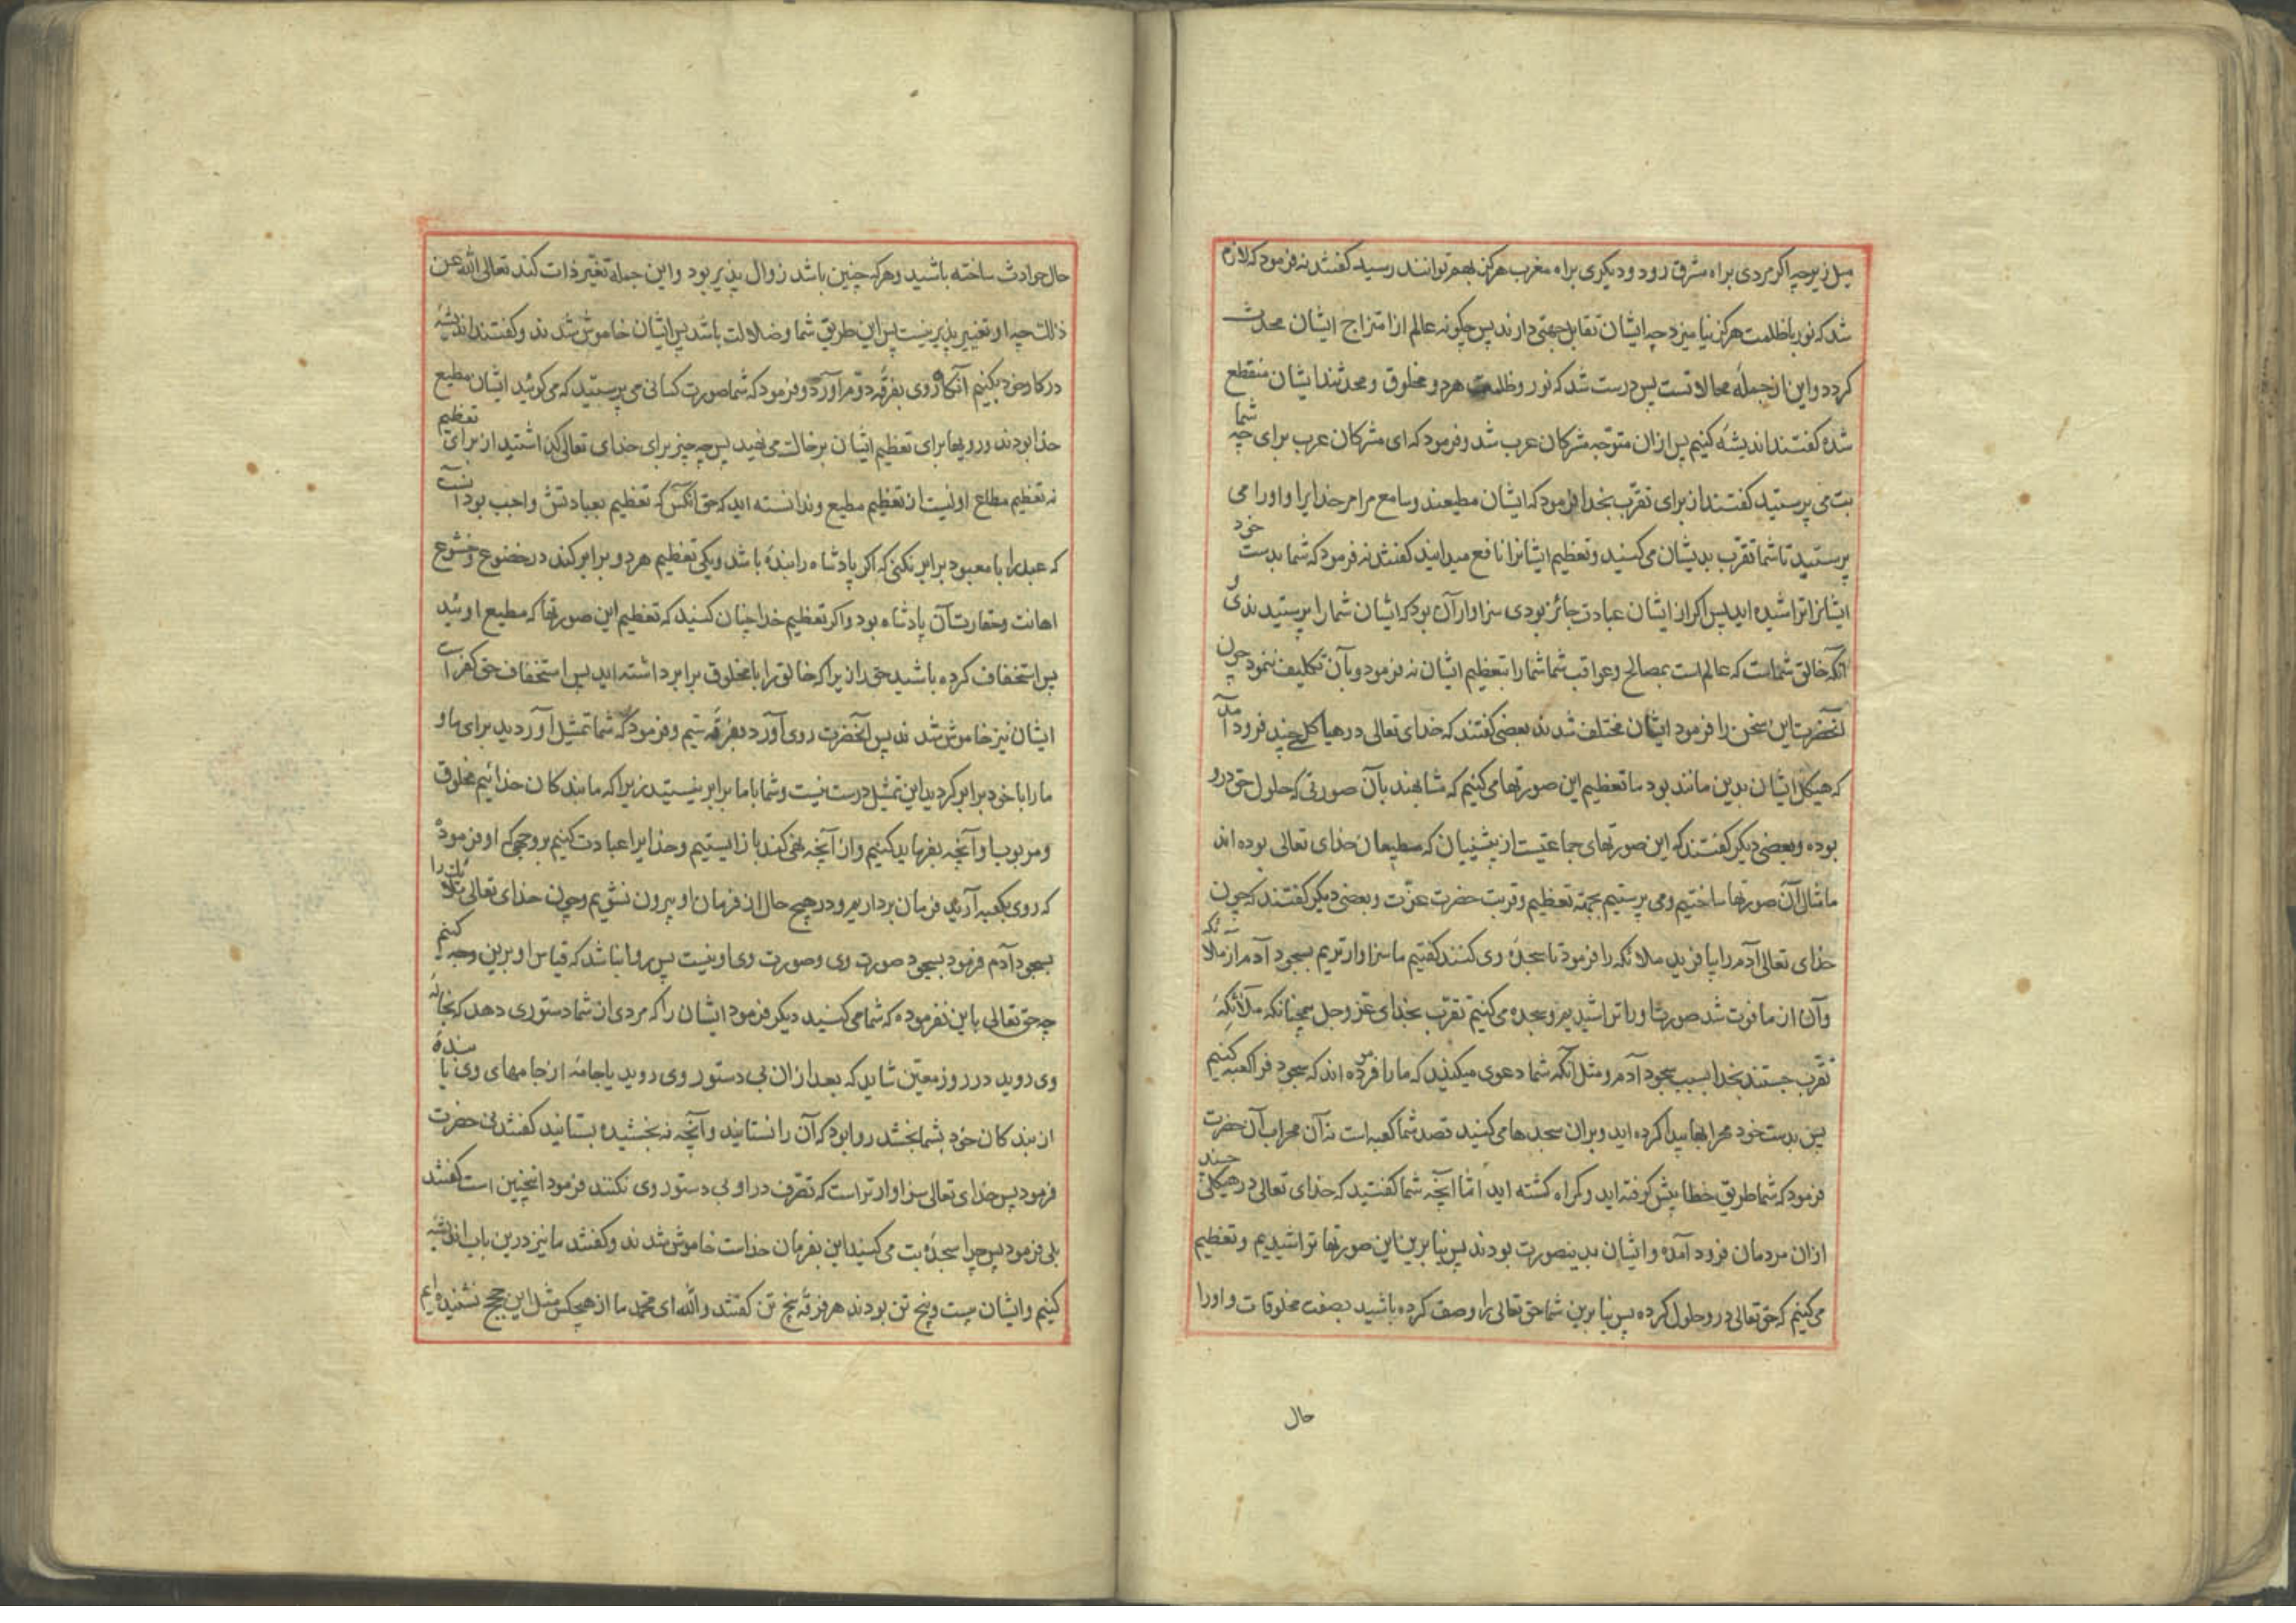 میل زیر چه اکر مردی براه مشرق رود و دیکری براه مغرب هرکز بهم توانند رسید کفتند نه فرمود که لازم
شد که نور با ظلمت هرکز نیامیزد چه ایشان تقابل جهتی دارند پس چکونه عالم از امتزاج ایشان محدث
کردد و این از جملهٔ محالاتست پس درست شد که نور و ظلمت هر دو مخلوق و محدثند ایشان منقطع
شده کفتند اندیشه کنیم پس ازان متوجه مشرکان عرب شد و فرمود که ای مشرکان عرب برای چه شما
بت می پرستید کفتند از برای تقرب بخدا فرمود که ایشان مطیعند و سامع مر امر خدایرا و او را می
پرستید تا شما تقرب بدیشان می کنید و تعظیم ایشانرا نافع میدانید کفتند نه فرمود که شما بدست خود
ایشانرا تراشیده اید پس اکر از ایشان عبادت جائز بودی سزاوار آن بود که ایشان شما را پرستیدندی و
آنکه خالق شماست که عالم است بمصالح و عواقب شما شما را بتعظیم ایشان نه فرمود و بآن تکلیف ننمود چون
آنحضرت این سخن را فرمود ایشان مختلف شدند بعضی کفتند که خدای تعالی در هیاکل چند فرود آمد
که هیکل ایشان بدین مانند بود ما تعظیم این صورتها می کنیم که مشابهند بآن صورتی که حلول حق درو
بوده و بعضی دیکر کفتند که این صورتهای جماعتیست از پیشینیان که مطیعان خدای تعالی بوده اند
ما مثال آن صورتها ساختیم و می پرستیم بجهة تعظیم و قربت حضرت عزّت و بعضی دیکر کفتند که چون
خدای تعالی آدم را بیافرید ملائکه را فرمود تا سجدهٔ وی کنند کفتیم ما سزاوارتریم بسجود آدم از ملائکه
و آن از ما فوت شد صورت او را تراشیدیم و سجده می کنیم تقرب بخدای عز و جل همچنانکه ملائکه
تقرب جستند بخدا بسبب سجود آدم و مثل آنکه شما دعوی میکنید که ما را فرموده اند که سجود فرا کعبه کنیم
پس بدست خود محرابها پیدا کرده اید و بران سجدها می کنید قصد شما کعبه است نه آن محراب آن حضرت
فرمود که شما طریق خطا پیش کرفته اید و کمراه کشته اید امّا آنچه شما کفتید که خدای تعالی در هیکلی چند
ازان مردمان فرود آمده و ایشان بدینصورت بودند پس بنابرین این صورتها تراشیدیم و تعظیم
می کنیم که حق تعالی درو حلول کرده پس بنا برین شما حق تعالی را وصف کرده باشید بصفت مخلوقات و او را
حال
حال حوادث ساخته باشید و هرکه چنین باشد زوال پذیر بود و این جمله تغیّر ذات کند تعالی الله عن
ذلک چه او تغییر پذیر نیست پس این طریق شما و ضلالت باشد پس ایشان خاموش شدند و کفتند اندیشه
در کار خود بکنیم آنکاه روی بفرقهٔ دوّم آورد و فرمود که شما صورت کسانی می پرستید که می کوئید ایشان مطیع
خدا بودند و رویها برای تعظیم ایشان بر خاک می نهید پس چه چیز برای خدای تعالی کذاشتید از برای تعظیم
نه تعظیم مطاع اولیست از تعظیم مطیع و ندانسته اید که حق آنکس که تعظیم بعبادتش واجب بود آنست
که عبد را با معبود برابر نکنی که اکر پادشاه را بندهٔ باشد و یکی تعظیم هر دو برابر کند در خضوع و خشوع
اهانت و حقارت آن پادشاه بود و اکر تعظیم خدا چنان کنید که تعظیم این صورتها که مطیع اوئید
پس استخفاف کرده باشید حق را زیرا که خالق را با مخلوق برابر داشته اید پس استخفاف حق کفر است
ایشان نیز خاموش شدند پس آنحضرت روی آورد بفرقهٔ سیم و فرمود که شما تمثیل آوردید برای ما و
ما را با خود برابر کردید این تمثیل درست نیست و شما با ما برابر نیستید زیرا که ما بندکان خدائیم مخلوق
و مربوب او آنچه بفرماید کنیم و از آنچه نهی کند باز ایستیم و خدایرا عبادت کنیم بر وجهی که او فرموده
که روی بکعبه آریم فرمان برداریم و در هیچ حال از فرمان او بیرون نشویم و چون خدای تعالی ملائک را
بسجود آدم فرمود بسجود صورت وی و صورت وی او نیست پس روا نباشد که قیاس او برین وجه کنیم
چه حق تعالی باین نفرموده که شما می کنید دیکر فرمود ایشان را که مردی از شما دستوری دهد که بخانهٔ
وی روید در روز معیّن شاید که بعد ازان بی دستور وی روید یا جامهٔ از جامهای وی یا بندهٔ
از بندکان خود بشما بخشد روا بود که آن را نستانید و آنچه نه بخشیده بستانید کفتند نی حضرت
فرمود پس خدای تعالی سزاوارتر است که تصرّف در او بی دستور وی نکنند فرمود اینچنین است کفتند
بلی فرمود پس چرا سجدهٔ بت می کنید این بفرمان خداست خاموش شدند و کفتند ما نیز درین باب اندیشه
کنیم و ایشان بیست و پنج تن بودند هر فرقهٔ پنج تن کفتند والله ای محمد ما از هیچکس مثل این حجج نشنیده ایم